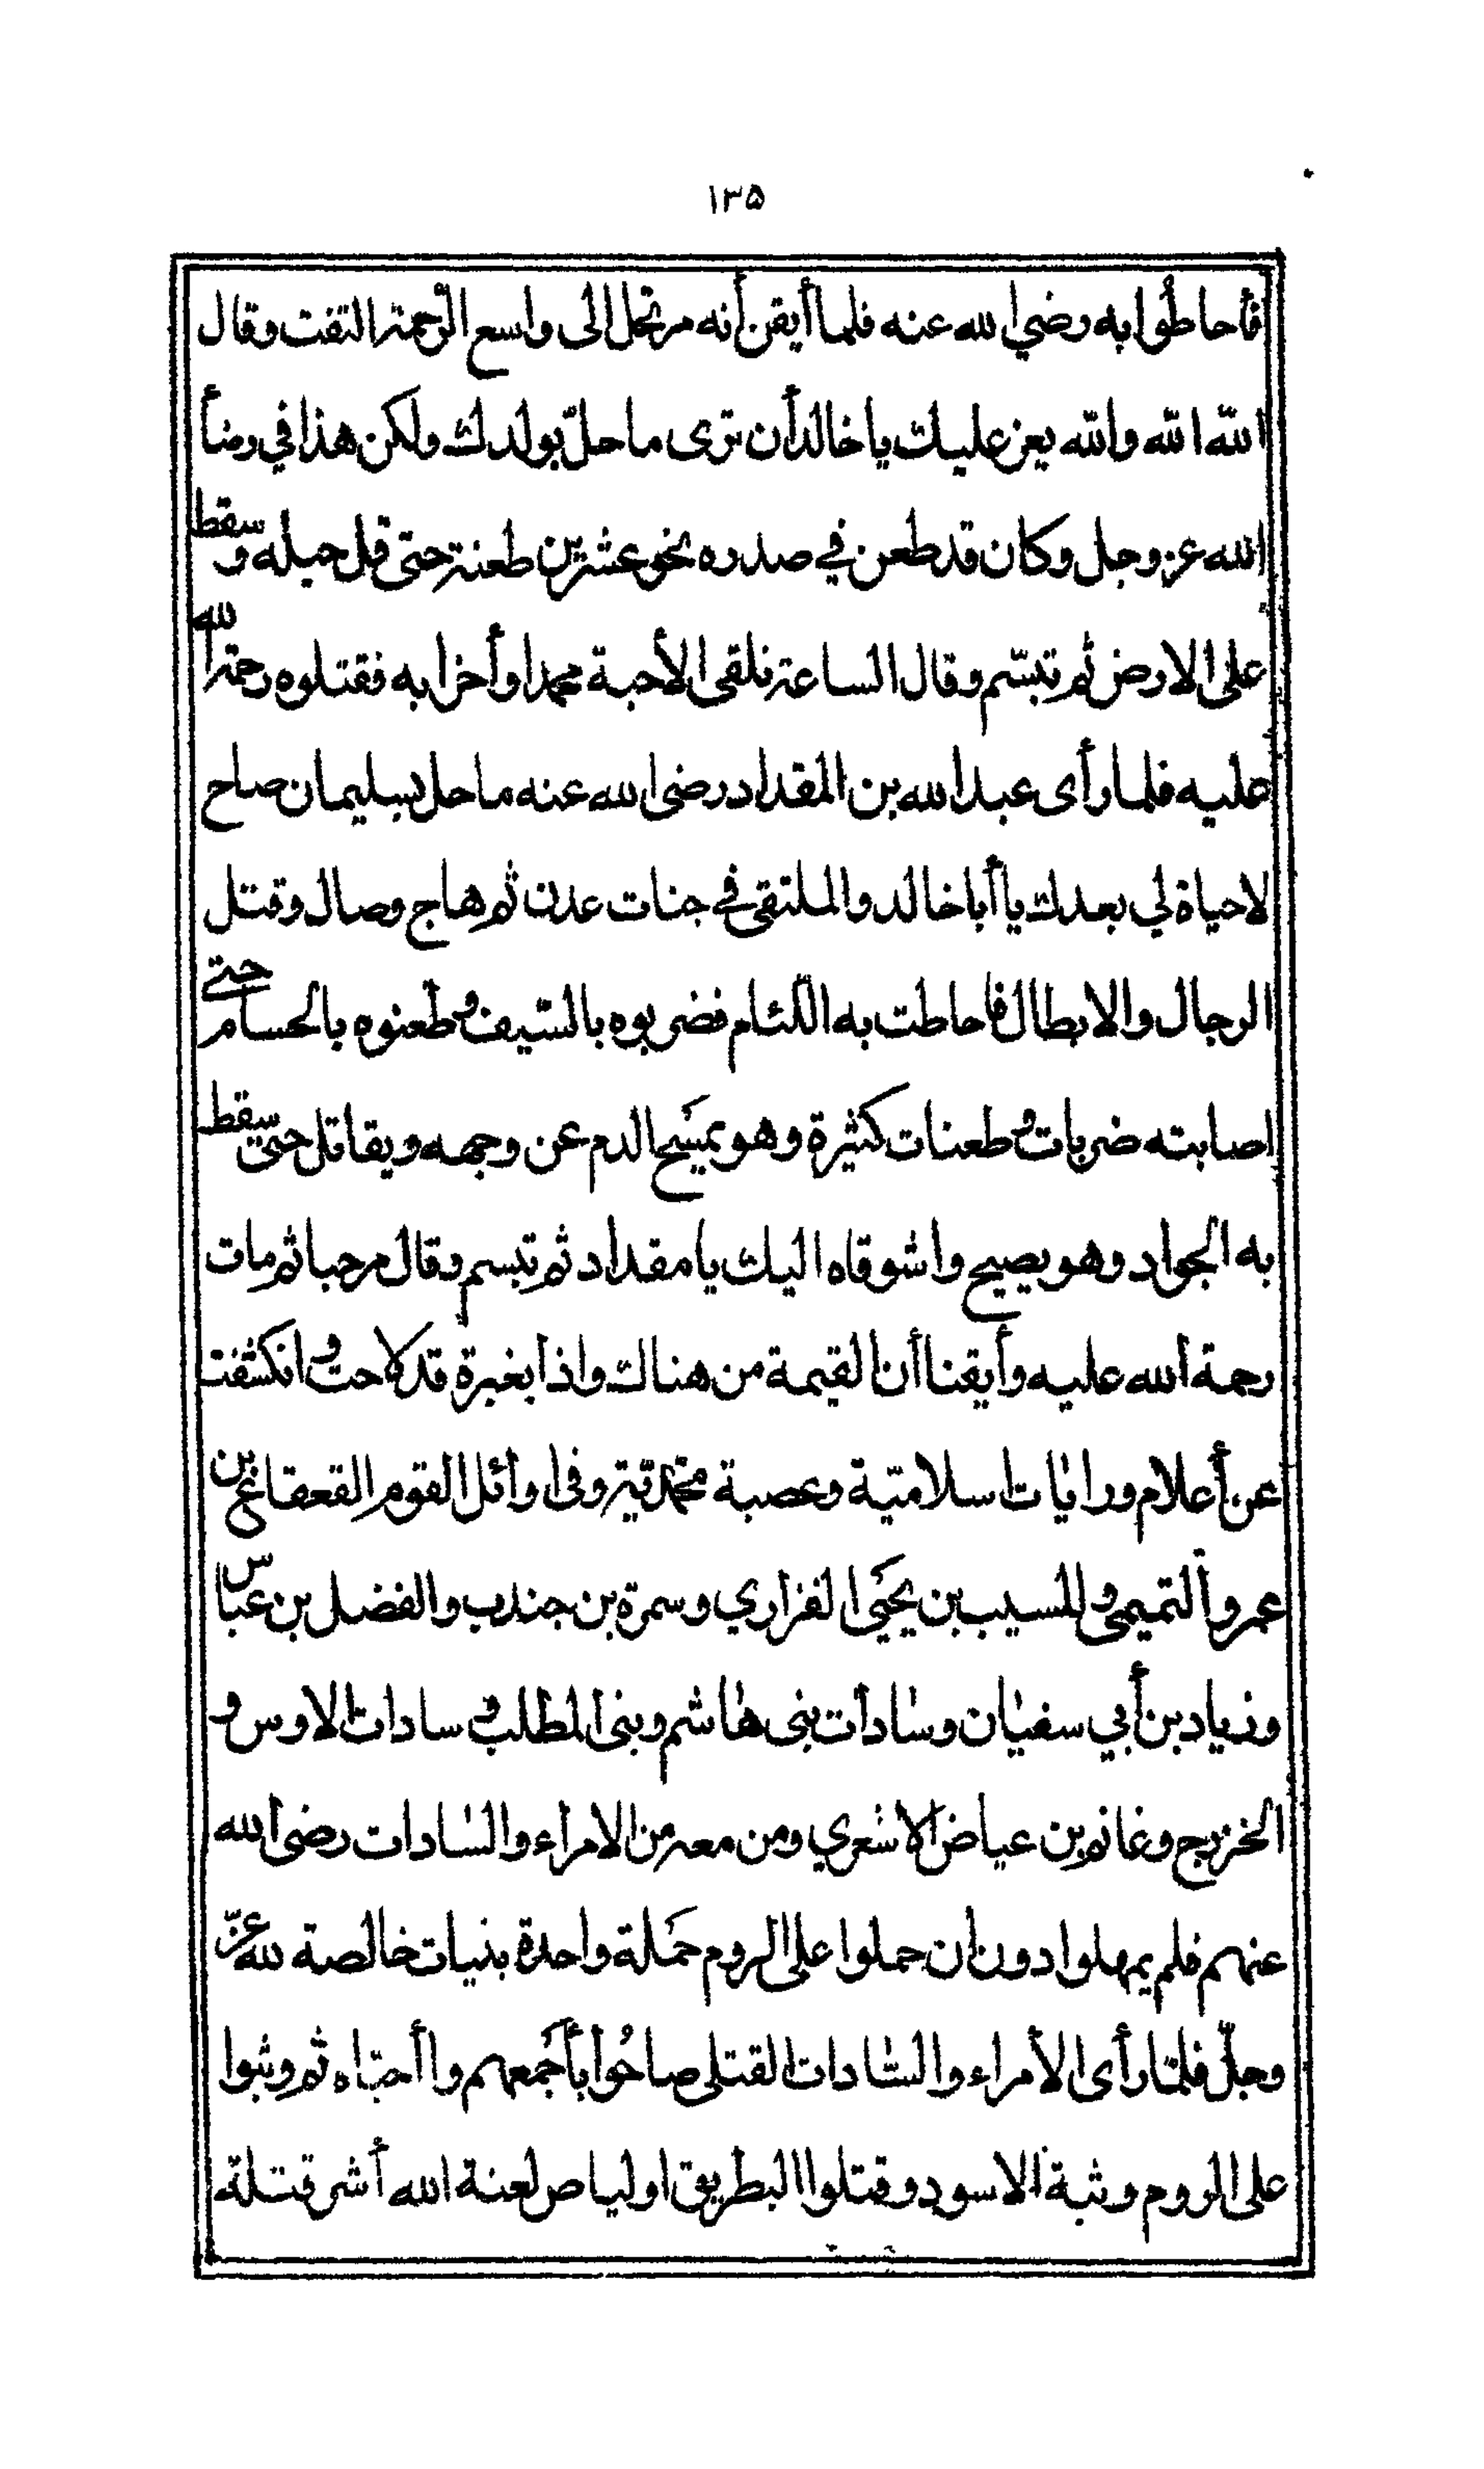 ١٣٥
فأحاطُوا به رضي الله عنه فلما أيقن أنه مرتحل الى واسع الرّحمة التفت وقال
اللّه اللّه واللّه يعز عليك يا خالد أن ترى ما حلّ بولدك ولكن هذا في رضأ
الله عز وجل وكان قد طعن في صدره نحو عشرين طعنة حتى قل حيله و سقط
على الارض ثم تبسّم وقال الساعة نلقى الأحبة محمدا وأخزابه فقتلوه رحمة الله
عليه فلما رأى عبد الله بن المقداد رضى الله عنه ما حل بسليمان صاح
لا حياة لي بعدك يا أبا خالد والملتقى في جنات عدن ثم هاج وصال وقتل
الرجال والابطال فاحاطت به اللّئام فضربوه بالسّيف وطعنوه بالحسام حتى
اصابته ضربات وطعنات كثيرة وهو يمسَح الدم عن وجهه ويقاتل حتى سقط
به الجواد وهو يصيح واشوقاه اليك يا مقداد ثم تبسم وقال مرحبا ثم مات
رحمة الله عليه وأيقنا أن القيمة من هناك واذا بغبرة قد لاحت وانكشفت
عن أعلام ورايات اسلاميّة وعصبة محمّديّة وفى اوائل القوم القعقاع بن
عمرو التميمى والمسيب بن يحيَى الفزاري وسمرة بن جندب والفضل بن عباس
وزياد بن أبي سفيان وسادات بنى هاشم وبنى المطلب وسادات الاوس و
الخزرج وغانم بن عياض الاشعري ومن معه من الامراء والسادات رضى الله
عنهم فلم يمهلوا دون ان حملوا على الروم حمَلة واحدة بنيات خالصة لله عزّ
وجلّ فلمّا رأى الأمراء والسّادات القتلى صاحُوا بأجمَعهم وا أحبّاه ثم وثبوا
على الروم وثبة الاسود وقتلوا البطريق اولياص لعنة الله أشر قتلة